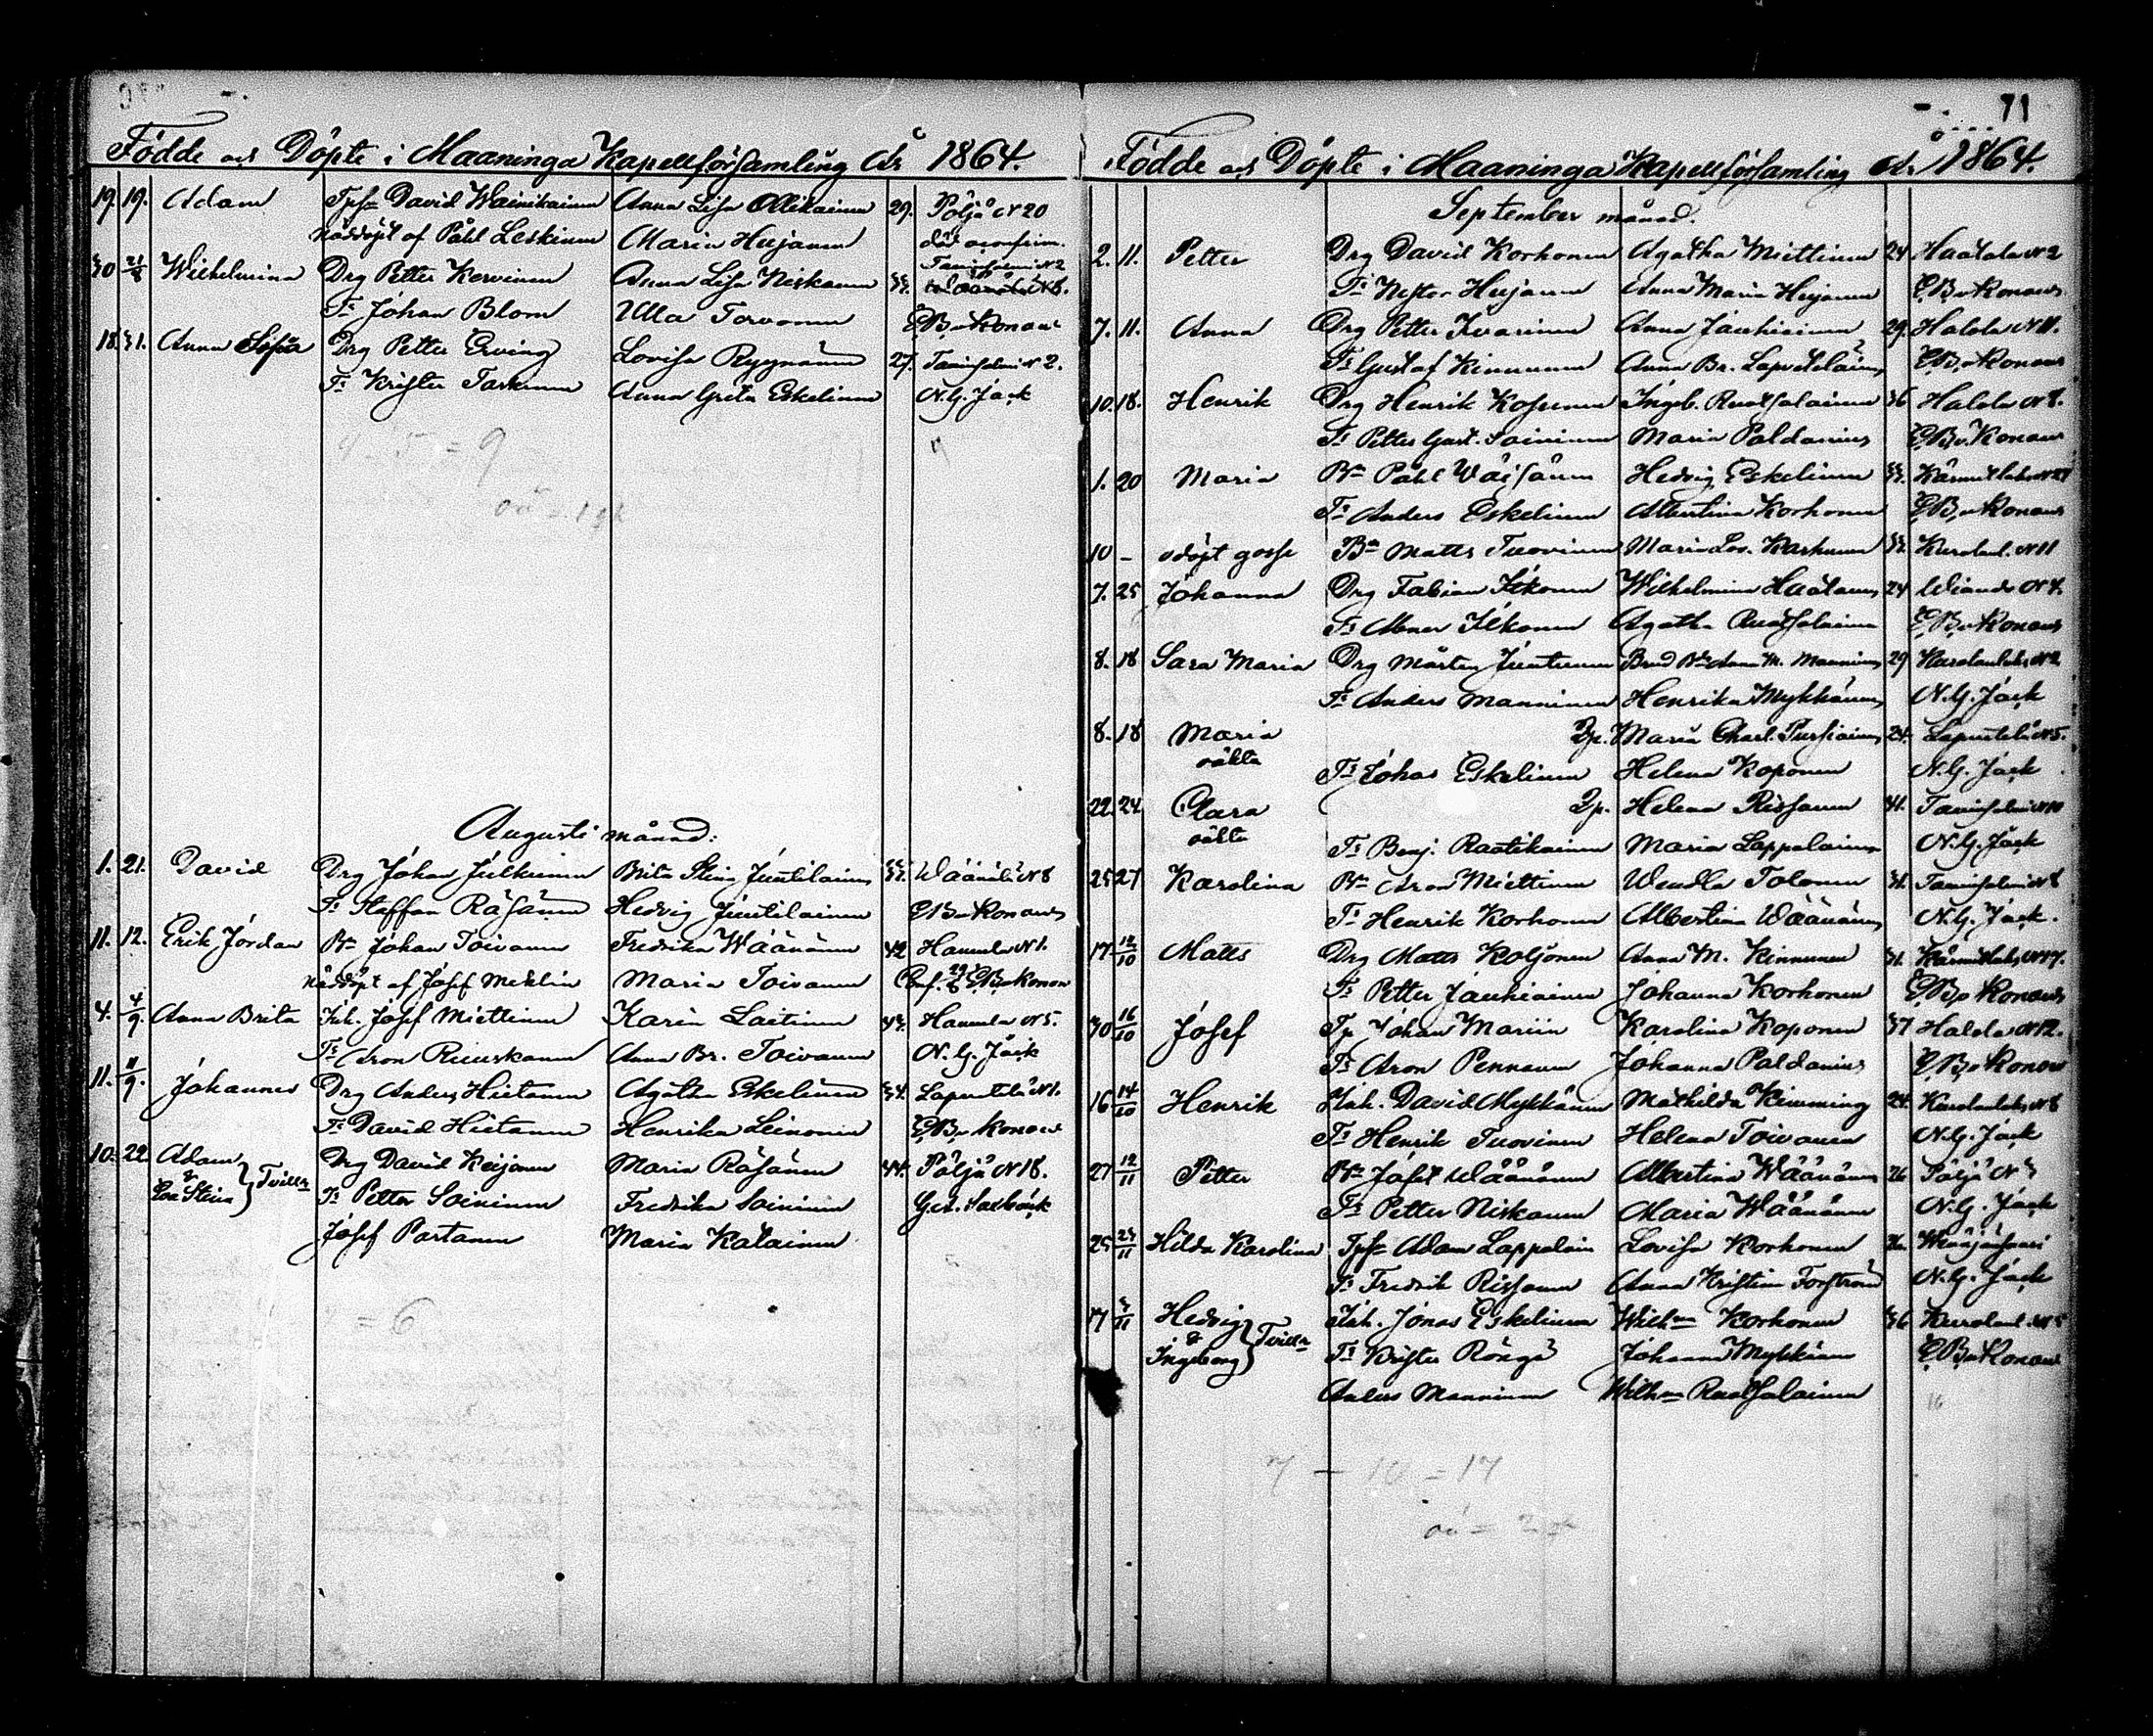 Födde och Döpte i Maaninga Kapellförsamling År 1864.
19. 19. Adam Tpf David Wainikainen Anna Lisa Ollikainen 29. Pöljä N 20
nöddöpt af Påhl Leskinen Maria Heijanen
30 21/8 Wilhelmina Drg Petter Kervinen Anna Lisa Niskanen 33. N 2
Ts Johan Blom Ulla Torvonen E. B. v Konow
18. 31. Anna Sofia Drg Petter Erving Lovisa Ryynänen 27. N 2.
Ts Krister Taskinen Anna Greta Eskelinen N. G. Jack
= 9
Augusti månad:
1. 21. David Drg Johan Julkunen Brita Stina Juntilainen 33. Wäänälä N 8
Ts Staffan Räsänen Hedvig Juntilainen E. B. v Konow
11. 12. Erik Jordan Bn Johan Toivanen Fredrika Wäänänen 42 Hamula N 1.
nöddöpt af Josef Meklin Maria Toivanen Conf. E. B. v Konow
4. 4/9. Anna Brita Inh. Josef Miettinen Karin Laitinen 43. Hamula N 5.
Ts Aron Ruuskanen Anna Br. Toivanen N. G. Jack
11. 11/9. Johannes Drg Anders Hietanen Agatha Eskelinen 34. Lapvetelä N 1.
Ts David Hietanen Henrika Leinonen E. B. v Konow
10. 22. Adam & Eva Stina } Tvill Drg David Keijonen Maria Räsänen 44. Pöljä N 18.
Ts Petter Soininen Fredrika Soininen
Josef Partanen Maria Katainen
= 6
71
Födde och Döpte i Maaninga Kapellförsamling År 1864.
September månad.
2. 11. Petter Drg David Korhonen Agatha Miettinen 24 Haatala N 2
Ts Nestor Heijanen Anna Maria Heijanen E. B. v Konow
7. 11. Anna Drg Petter Iivarinen Anna Jauhiainen 29. Halola N 11.
Ts Gustaf Kinnunen Anna Br. Lapveteläinen E. B. v Konow
10. 18. Henrik Drg Henrik Kosunen Ingeb. Ruotsalainen 36 Halola N 8.
Ts Petter Gust. Soininen Maria Paldanius E. B. v Konow
1. 20 Maria Bn Påhl Wäisänen Hedvig Eskelinen 33. N 27
Ts Anders Eskelinen Albertina Korhonen E. B. v Konow
10 – odöpt gosse Bn Matts Tuovinen Maria Lov. Karhunen 32. Kurolanl. N 11
7. 25 Johanna Drg Fabian Ikonen Wilhelmina Haatanen 24 N 4.
Ts Abner Ikonen Agatha Ruotsalainen E. B. v Konow
8. 18 Sara Maria Drg Mårten Juntunen Anna M. Manninen 29 Kurolanlahti N 2
Ts Anders Manninen Henrika Mykkänen N. G. Jack
8. 18 Maria oäkta Maria Charl. Pursiainen 24. Lapvetelä N 5.
Ts Johan Eskelinen Helena Koponen N. G. Jack
22. 24 Clara oäkta Helena Rissanen 41. N 10
Ts Benj. Raatikainen Maria Lappalainen N. G. Jack
25 27 Karolina Bn Aron Miettinen Wendla Tolonen 31. N 8
Ts Henrik Korhonen Albertina Wäänänen N. G. Jack.
17 12/10 Matts Drg Matts Koljonen Anna M. Kinnunen 31. N 17.
Ts Petter Jauhiainen Johanna Korhonen E. B. v Konow
30 16/10 Josef Tp Johan Mariin Karolina Koponen 37 Halola N 12.
Ts Aron Pennanen Johanna Paldanius E. B. v Konow
16 14/10 Henrik Inh. David Mykkänen Mathilda Kimming 24. Kurolanlahti N 8
Ts Henrik Tuovinen Helena Toivanen N. G. Jack
27 12/11 Petter Bn Josef Wäänänen Albertina Wäänänen 26 Pöljä N 3
Ts Petter Niskanen Maria Wäänänen N. G. Jack
25 23/11 Hilda Karolina Tpf Adam Lappalain Lovisa Korhonen
Ts Fredrik Rissanen Anna Kristina Forström N. G. Jack
17 3/11 Hedvig & Ingeborg } Tvill Inh. Jonas Eskelinen Wilhna Korhonen 36 Kurolanl. N 5
Ts Krister Röngä Johanna Mykkänen E. B. v Konow
Anders Manninen Wilhna Ruotsalainen
16
7 – 10 = 17